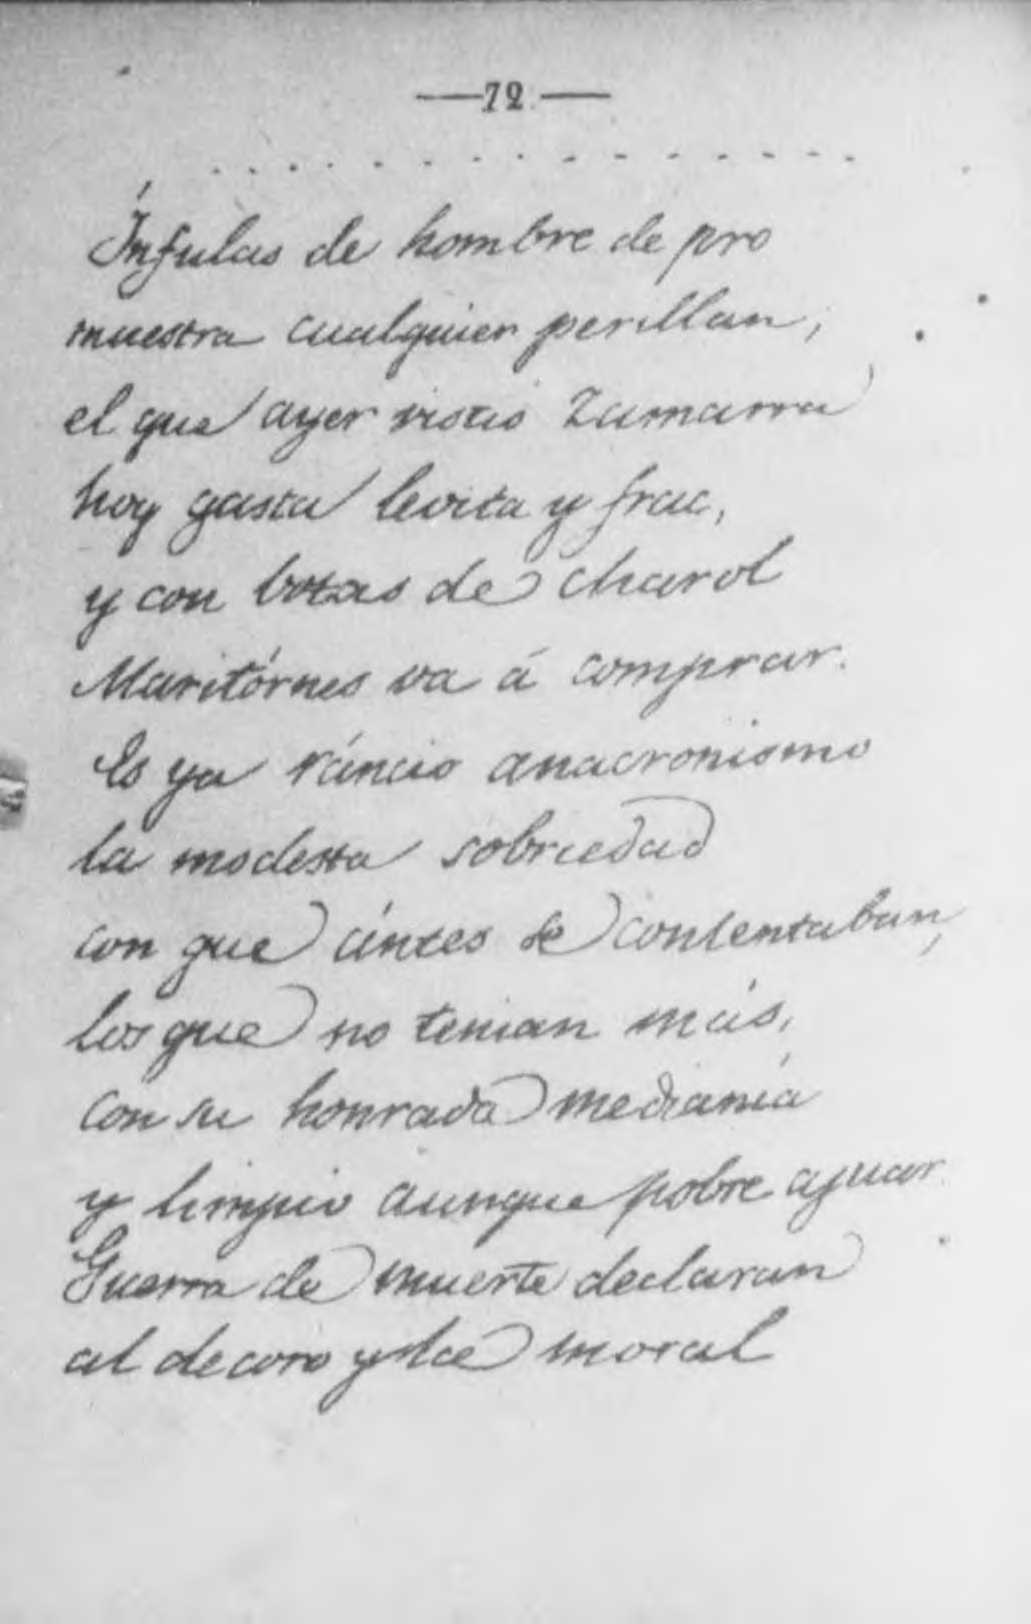 —72—
. . . . . . . . . . . . . . .
Ínfulas de hombre de pro
muestra cualquier perillan;
el que ayer vistió zamarra
hoy gasta levita y frac,
y con botas de charol
Maritórnes va á comprar.
Es ya ráncio anacronismo
la modesta sobriedad
con que ántes se contentaban,
los que no tenian más,
con su honrada medianía
y limpio aunque pobre ajuar.
Guerra de muerte declaran
al decoro y la moral